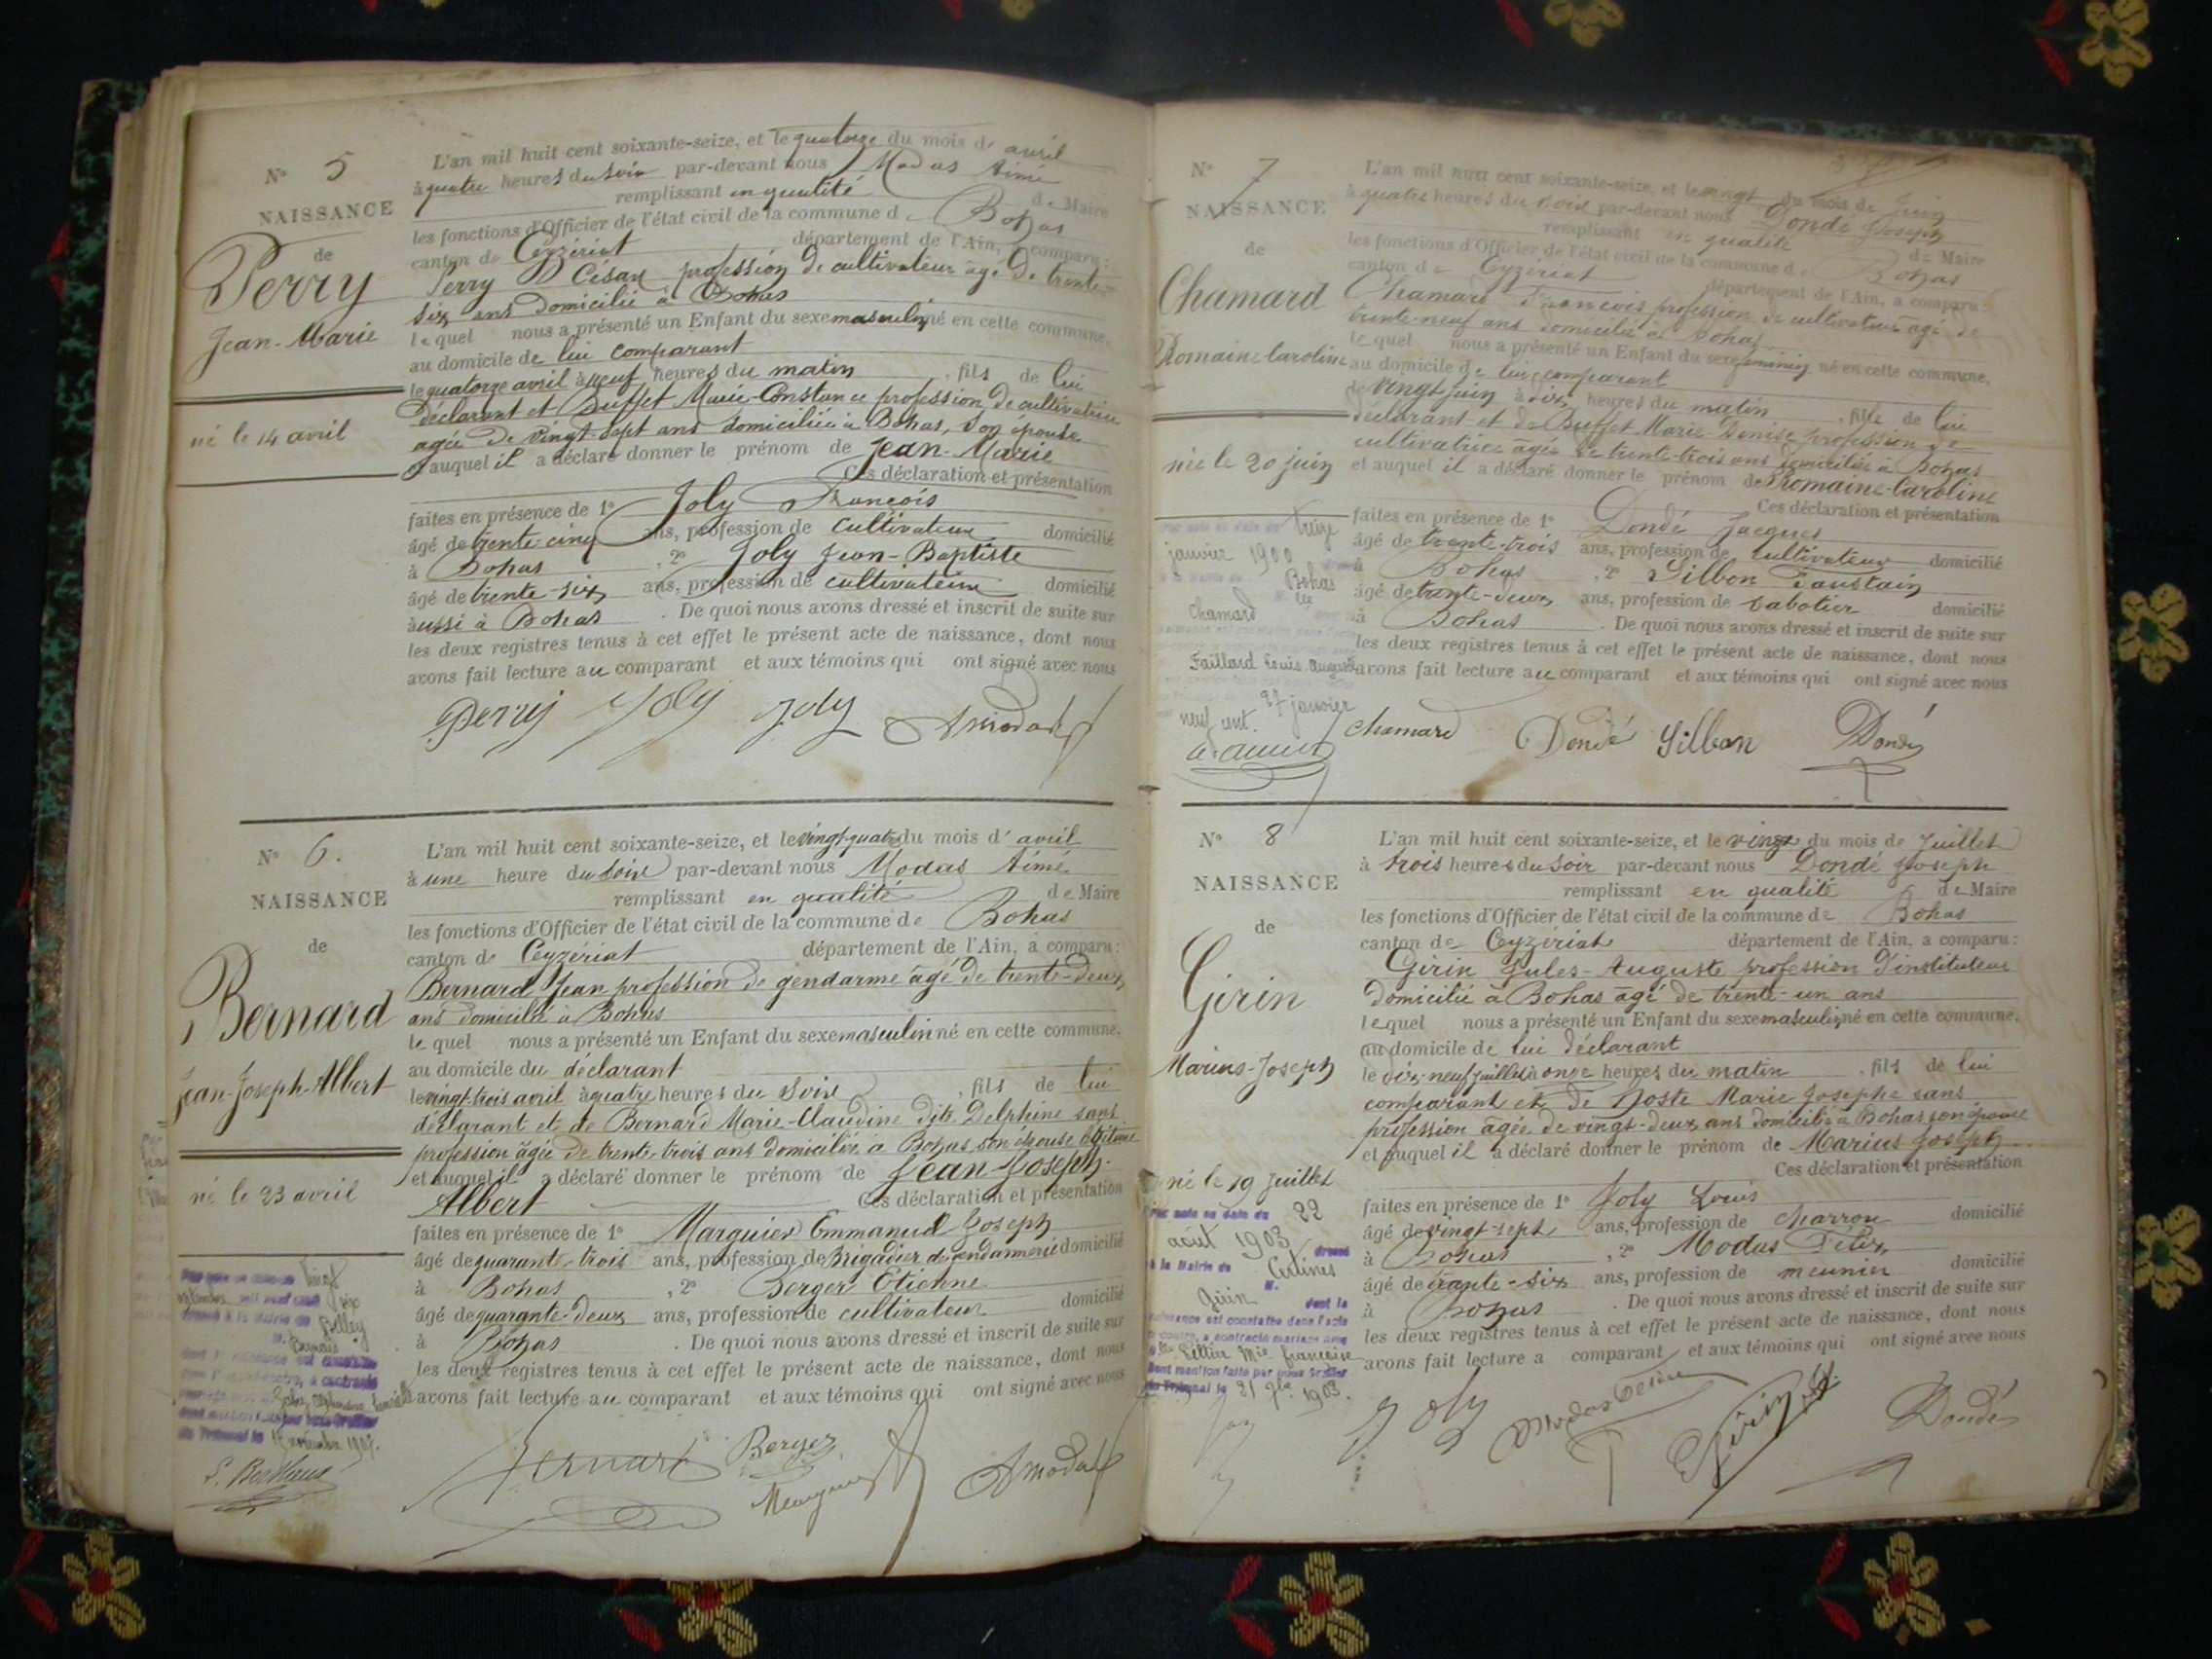 N° 5
NAISSANCE
de
Perry
Jean-Marie
né le 14 avril
L'an mil huit cent soixante-seize, et le quatorze du mois d' avril
à quatre heures du soir par-devant nous Modas Aimé
remplissant en qualité de Maire
les fonctions d'Officier de l'état civil de la commune de Bohas
canton de Ceyzériat département de l'Ain, a comparu:
Perry César profession de cultivateur âgé de trente-
six ans domicilié à Bohas
lequel nous a présenté un Enfant du sexe masculin né en cette commune,
au domicile de lui comparant
le quatorze avril à neuf heures du matin, fils de lui
déclarant et Buffet Marie-Constance profession de cultivatrice
agée de vingt-sept ans domiciliée à Bohas, son épouse
auquel il a déclaré donner le prénom de Jean-Marie
Ces déclaration et présentation
faites en présence de 1° Joly François
âgé de trente-cinq ans, profession de cultivateur domicilié
à Bohas, 2° Joly Jean-Baptiste
âgé de trente-six ans, profession de cultivateur domicilié
aussi à Bohas. De quoi nous avons dressé et inscrit de suite sur
les deux registres tenus à cet effet le présent acte de naissance, dont nous
avons fait lecture au comparant et aux témoins qui ont signé avec nous
Perry Joly Joly Amodas
N° 6.
NAISSANCE
de
Bernard
Jean-Joseph-Albert
né le 23 avril
L'an mil huit cent soixante-seize, et le vingt-quatre du mois d' avril
à une heure du soir par-devant nous Modas Aimé
remplissant en qualité de Maire
les fonctions d'Officier de l'état civil de la commune de Bohas
canton de Ceyzériat département de l'Ain, a comparu:
Bernard Jean profession de gendarme âgé de trente-deux
ans domicilié à Bohas
lequel nous a présenté un Enfant du sexe masculin né en cette commune,
au domicile du déclarant
le vingt-trois avril à quatre heures du soir, fils de lui
déclarant et de Bernard Marie-Claudine dite Delphine sans
profession âgée de trente-trois ans domiciliée à Bohas son épouse légitime
et auquel il a déclaré donner le prénom de Jean Joseph-
Albert Ces déclaration et présentation
faites en présence de 1° Marquier Emmanuel Joseph
âgé de quarante-trois ans, profession de Brigadier de gendarmerie domicilié
à Bohas, 2° Berger Etienne
âgé de quarante-deux ans, profession de cultivateur domicilié
à Bohas. De quoi nous avons dressé et inscrit de suite sur
les deux registres tenus à cet effet le présent acte de naissance, dont nous
avons fait lecture au comparant et aux témoins qui ont signé avec nous
Belley
du Tribunal le
Bernard Berger Amodas
N° 7
NAISSANCE
de
Chamard
Romaine-Caroline
née le 20 juin
treize
janvier 1900
Bohas
Chamard
Faillard Louis Auguste
27 janvier
neuf cent.
L'an mil huit cent soixante-seize, et le vingt du mois de Juin
à quatre heures du soir par-devant nous Dondé Joseph
remplissant en qualité de Maire
les fonctions d'Officier de l'état civil de la commune de Bohas
canton de Ceyzériat département de l'Ain, a comparu:
Chamard François profession de cultivateur âgé de
trente-neuf ans domicilié à Bohas
lequel nous a présenté un Enfant du sexe féminin né en cette commune,
au domicile de lui comparant
le vingt juin à six heures du matin, fille de lui
déclarant et de Buffet Marie Denise profession de
cultivatrice âgée de trente-trois ans domiciliée à Bohas
et auquel il a déclaré donner le prénom de Romaine-Caroline
Ces déclaration et présentation
faites en présence de 1° Dondé Jacques
âgé de trente-trois ans, profession de cultivateur domicilié
à Bohas, 2° Silbon Faustain
âgé de trente-deux ans, profession de sabotier domicilié
à Bohas. De quoi nous avons dressé et inscrit de suite sur
les deux registres tenus à cet effet le présent acte de naissance, dont nous
avons fait lecture au comparant et aux témoins qui ont signé avec nous
Chamard Dondé Silbon Dondé
N° 8
NAISSANCE
de
Girin
Marius-Joseph
né le 19 Juillet
Par acte en date du 22
août 1903 dressé
à la Mairie de Certines
M.
Girin dont la
naissance est constatée dans l'acte
ci-contre, a contracté mariage avec
Mie françoise
Dont mention faite par nous Greffier
du Tribunal le 21 9bre 1903.
L'an mil huit cent soixante-seize, et le vingt du mois de Juillet
à trois heures du soir par-devant nous Dondé Joseph
remplissant en qualité de Maire
les fonctions d'Officier de l'état civil de la commune de Bohas
canton de Ceyzériat département de l'Ain, a comparu:
Girin Jules-Auguste profession d'instituteur
domicilié à Bohas âgé de trente-un ans
lequel nous a présenté un Enfant du sexe masculin né en cette commune,
au domicile de lui déclarant
le dix-neuf juillet à onze heures du matin, fils de lui
comparant et de Joste Marie Josephe sans
profession agée de vingt-deux ans domiciliée à Bohas son épouse
et auquel il a déclaré donner le prénom de Marius Joseph
Ces déclaration et présentation
faites en présence de 1° Joly Louis
âgé de vingt-sept ans, profession de charron domicilié
à Bohas, 2° Modas Félix
âgé de trente-six ans, profession de meunier domicilié
à Bohas. De quoi nous avons dressé et inscrit de suite sur
les deux registres tenus à cet effet le présent acte de naissance, dont nous
avons fait lecture a comparant et aux témoins qui ont signé avec nous
Joly Modas Félix Girin Dondé